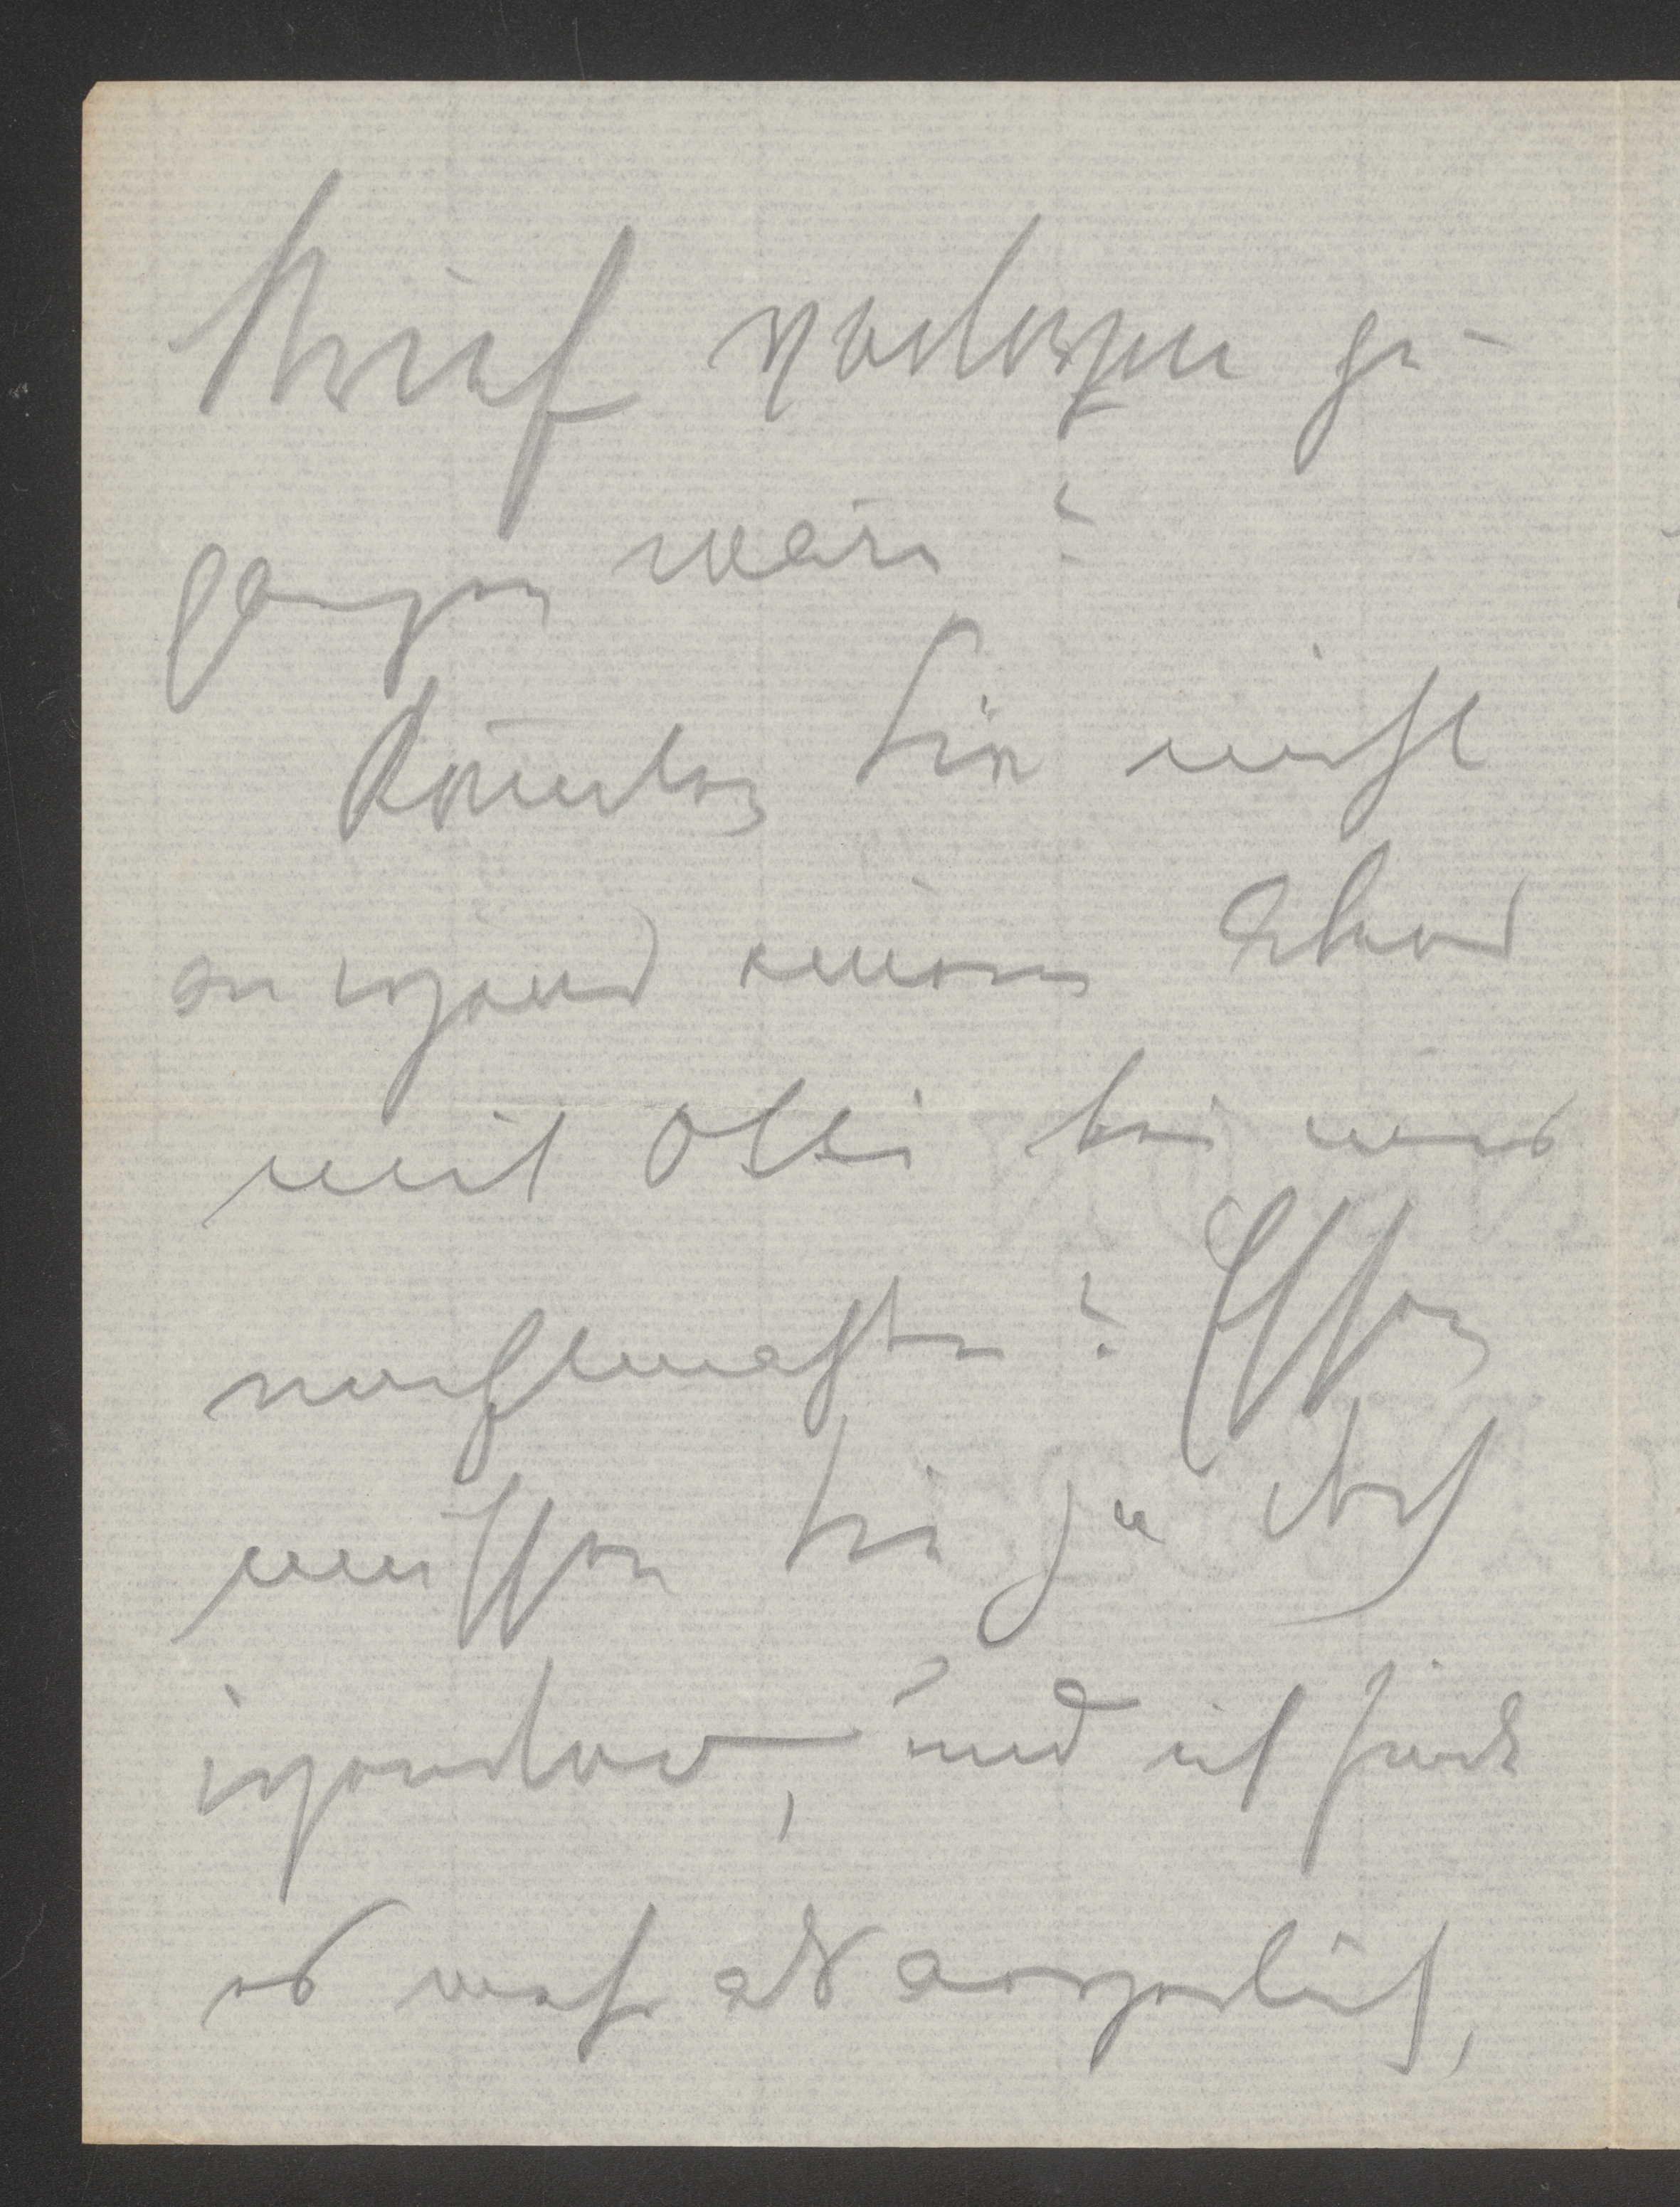 Brief verloren ge-
gangen wäre?
Könnten Sie nicht
an irgend einem Abend
mit Olli bei uns
nachtmahlen? Essen
müssen Sie ja doch
irgendwo, und ich finde
es mehr als ärgerlich,